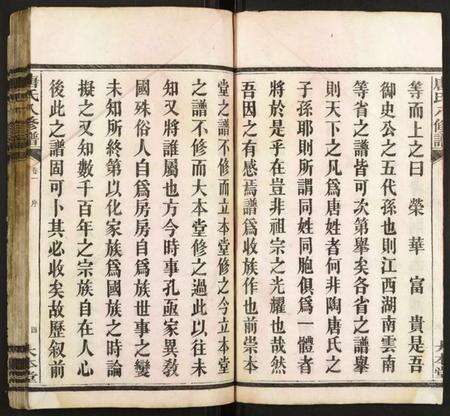 等而上之曰榮華富貴是吾
御史公之五代孫也則江西湖南雲南
等省之譜皆可次第舉矣各省之譜舉
則天下之凡爲唐姓者何非陶唐氏之
子孫耶則所謂同姓同胞俱爲一體者
將於是乎在豈非祖宗之光耀也哉然
吾因之有感焉譜爲收族作也前崇本
堂之譜不修而立本堂修之今立本堂
之譜不修而大本堂修之過此以往未
知又將誰屬也方今時事孔亟家異敎
國殊俗人自爲房房自爲族世事之變
未知所終第以化家族爲國族之時論
擬之又知數千百年之宗族自在人心
後此之譜固可卜其必收矣故歷叙前
唐氏八修譜
卷一
序
四
大本堂